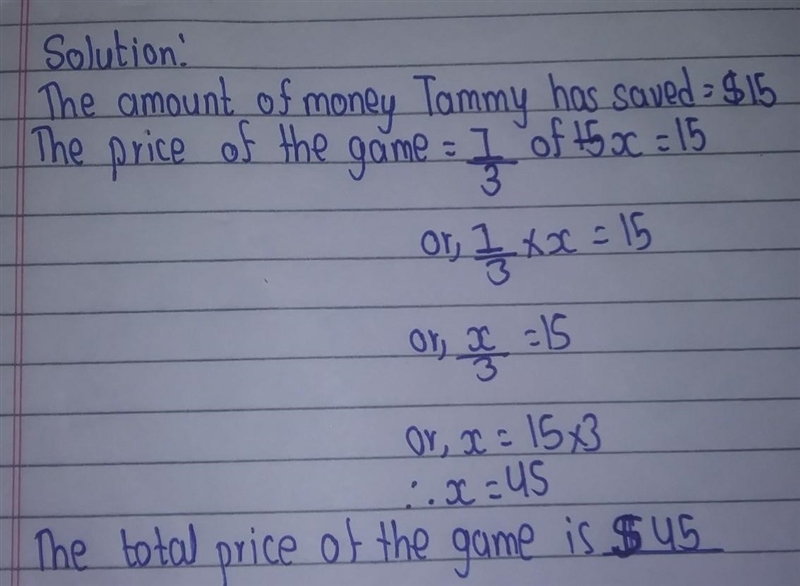 Solution:
The amount of money Tammy has saved = $15
The price of the game = 1/3 of x = 15
or, 1/3 × x = 15
or, x/3 = 15
or, x = 15 × 3
∴ x = 45
The total price of the game is $45